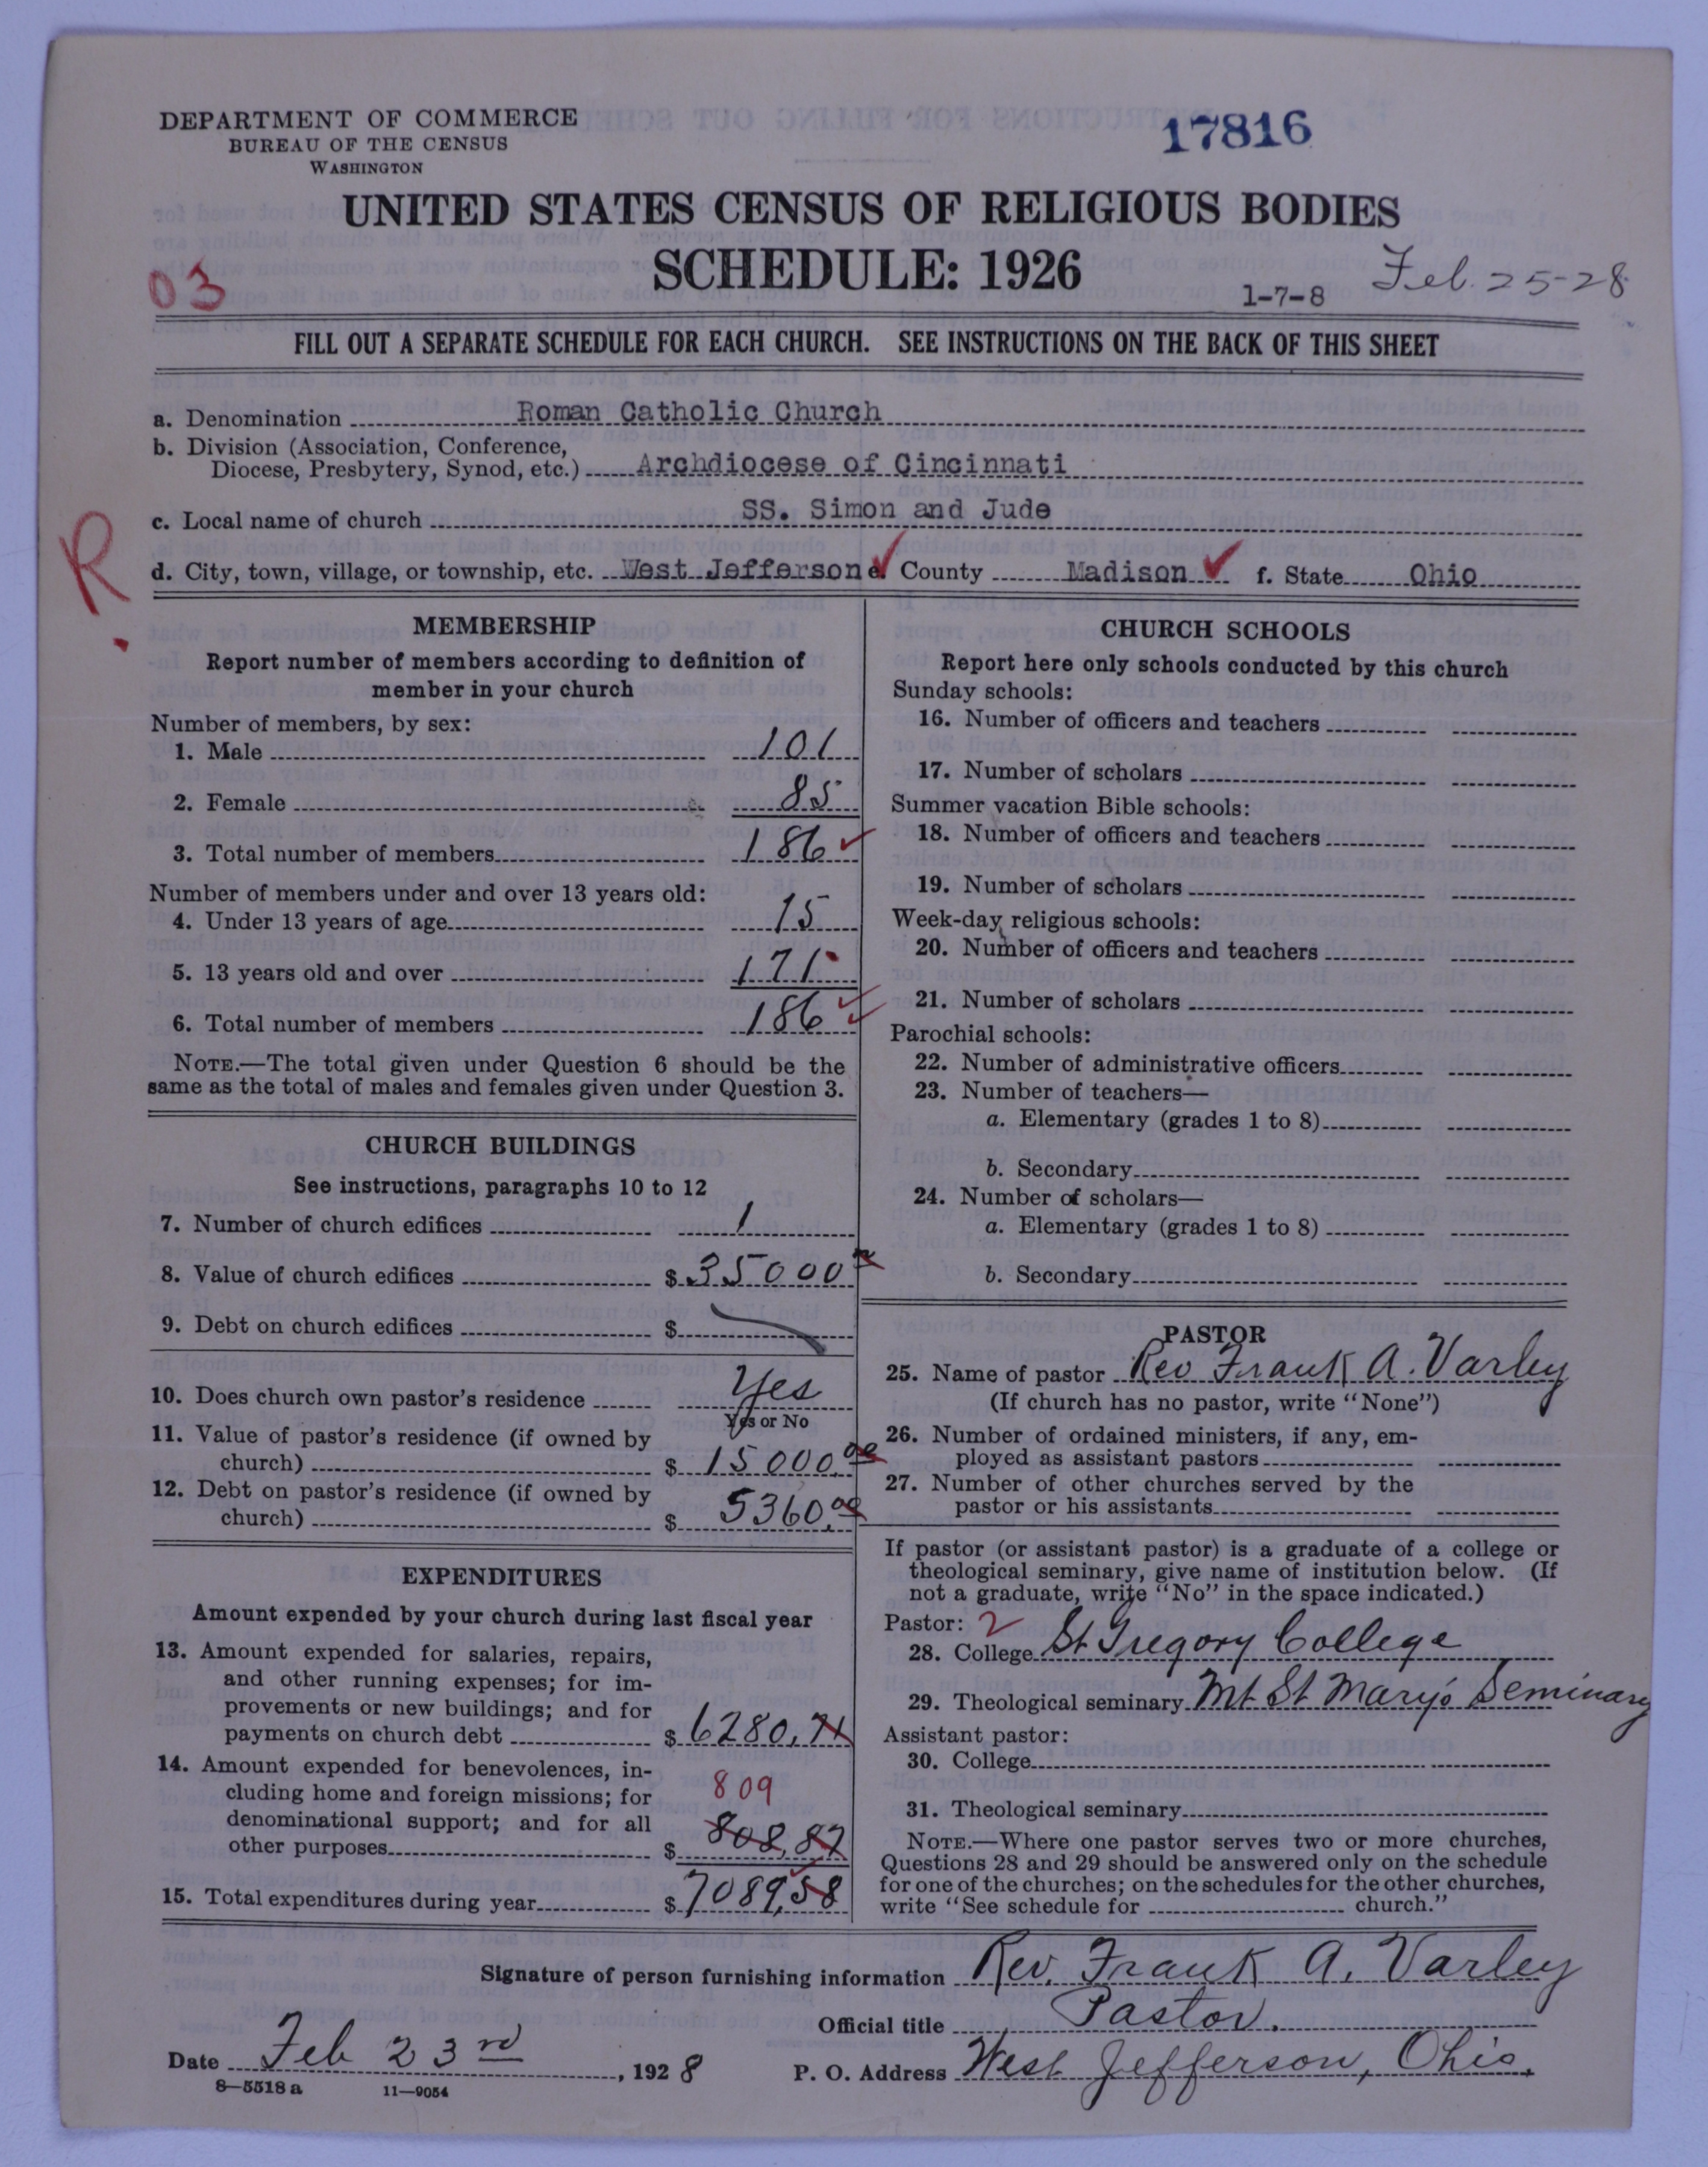 DEPARTMENT OF COMMERCE
BUREAU OF THE CENSUS
WASHINGTON
17816
UNITED STATES CENSUS OF RELIGIOUS BODIES
SCHEDULE: 1926
03
1-7-8
Feb. 25-28
FILL OUT A SEPARATE SCHEDULE FOR EACH CHURCH. SEE INSTRUCTIONS ON THE BACK OF THIS SHEET
a. Denomination Roman Catholic Church
b. Division (Association, Conference,
Diocese, Presbytery, Synod, etc.) Archdiocese of Cincinnati
c. Local name of church SS. Simon and Jude
R.
d. City, town, village, or township, etc. West Jefferson e. County Madison f. State Ohio
MEMBERSHIP
Report number of members according to definition of
member in your church
Number of members, by sex:
1. Male 101
2. Female 85
3. Total number of members 186
Number of members under and over 13 years old:
4. Under 13 years of age 15
5. 13 years old and over 171
6. Total number of members 186
NOTE.—The total given under Question 6 should be the
same as the total of males and females given under Question 3.
CHURCH BUILDINGS
See instructions, paragraphs 10 to 12
7. Number of church edifices 1
8. Value of church edifices $ 35000
9. Debt on church edifices $
10. Does church own pastor's residence Yes
Yes or No
11. Value of pastor's residence (if owned by
church) $ 15000.00
12. Debt on pastor's residence (if owned by
church) $ 5360.00
EXPENDITURES
Amount expended by your church during last fiscal year
13. Amount expended for salaries, repairs,
and other running expenses; for im-
provements or new buildings; and for
payments on church debt $ 6280.71
14. Amount expended for benevolences, in-
cluding home and foreign missions; for 809
denominational support; and for all
other purposes $ 808.87
15. Total expenditures during year $ 7089.58
CHURCH SCHOOLS
Report here only schools conducted by this church
Sunday schools:
16. Number of officers and teachers
17. Number of scholars
Summer vacation Bible schools:
18. Number of officers and teachers
19. Number of scholars
Week-day religious schools:
20. Number of officers and teachers
21. Number of scholars
Parochial schools:
22. Number of administrative officers
23. Number of teachers—
a. Elementary (grades 1 to 8)
b. Secondary
24. Number of scholars—
a. Elementary (grades 1 to 8)
b. Secondary
PASTOR
25. Name of pastor Rev Frank A. Varley
(If church has no pastor, write "None")
26. Number of ordained ministers, if any, em-
ployed as assistant pastors
27. Number of other churches served by the
pastor or his assistants
If pastor (or assistant pastor) is a graduate of a college or
theological seminary, give name of institution below. (If
not a graduate, write "No" in the space indicated.)
Pastor: 2
28. College St Gregory College
29. Theological seminary Mt St Mary's Seminary
Assistant pastor:
30. College
31. Theological seminary
NOTE.—Where one pastor serves two or more churches,
Questions 28 and 29 should be answered only on the schedule
for one of the churches; on the schedules for the other churches,
write "See schedule for church."
Signature of person furnishing information Rev. Frank A. Varley
Official title Pastor.
Date Feb 23rd, 1928 P. O. Address West Jefferson, Ohio.
8-5518 a 11-9054